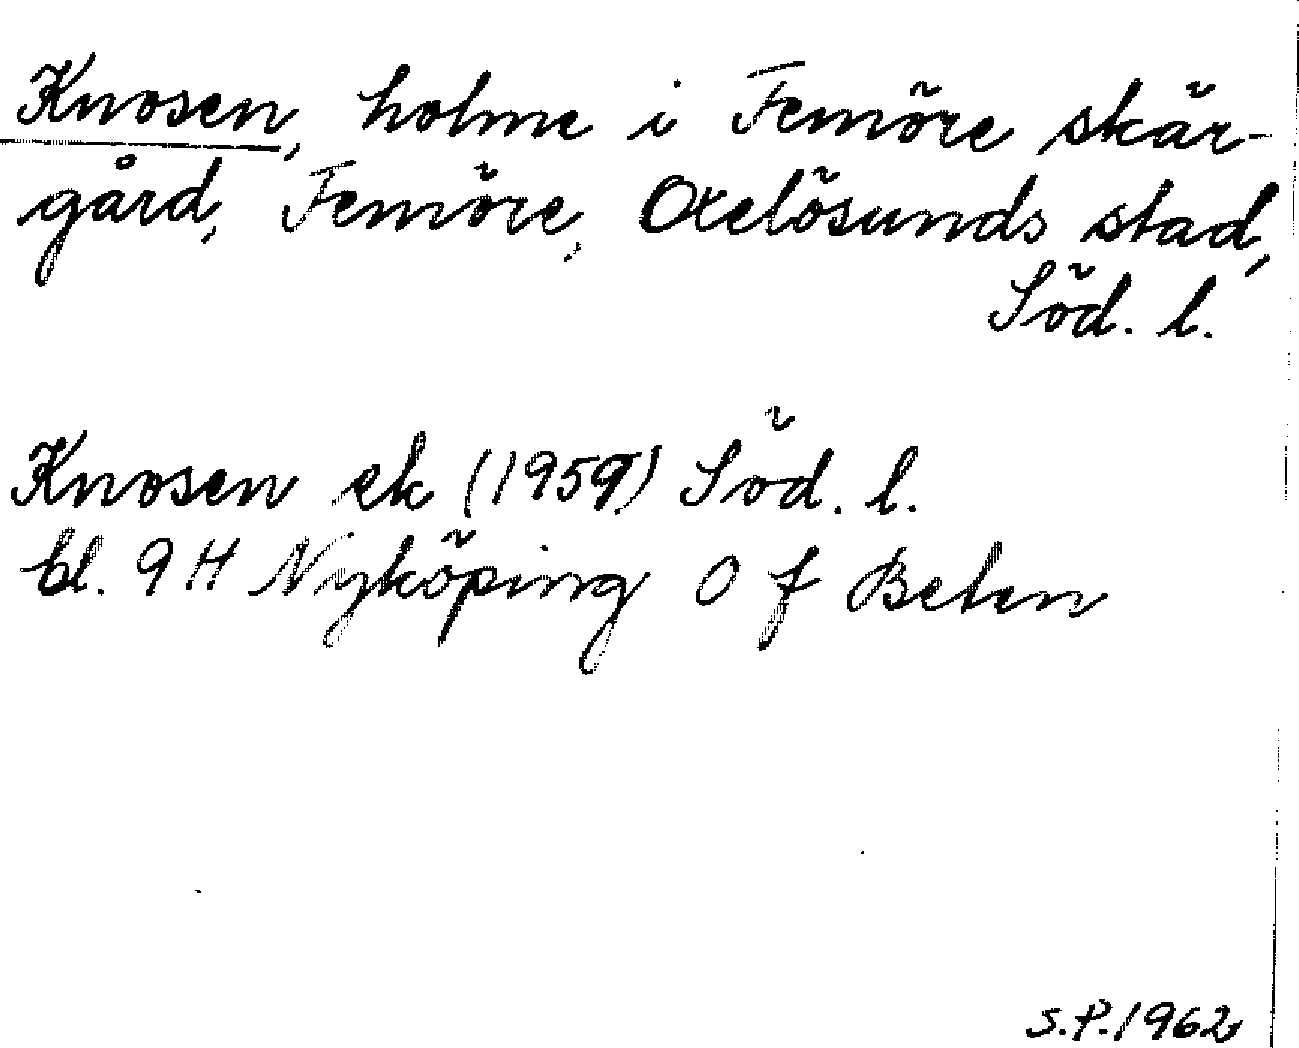 Knosen, holme i Femöre skär-
gård, Femöre, Oxelösunds stad,
Söd. l.
Knosen ek (1959) Söd. l.
bl. 9 H Nyköping O f Beten
S.P. 1962